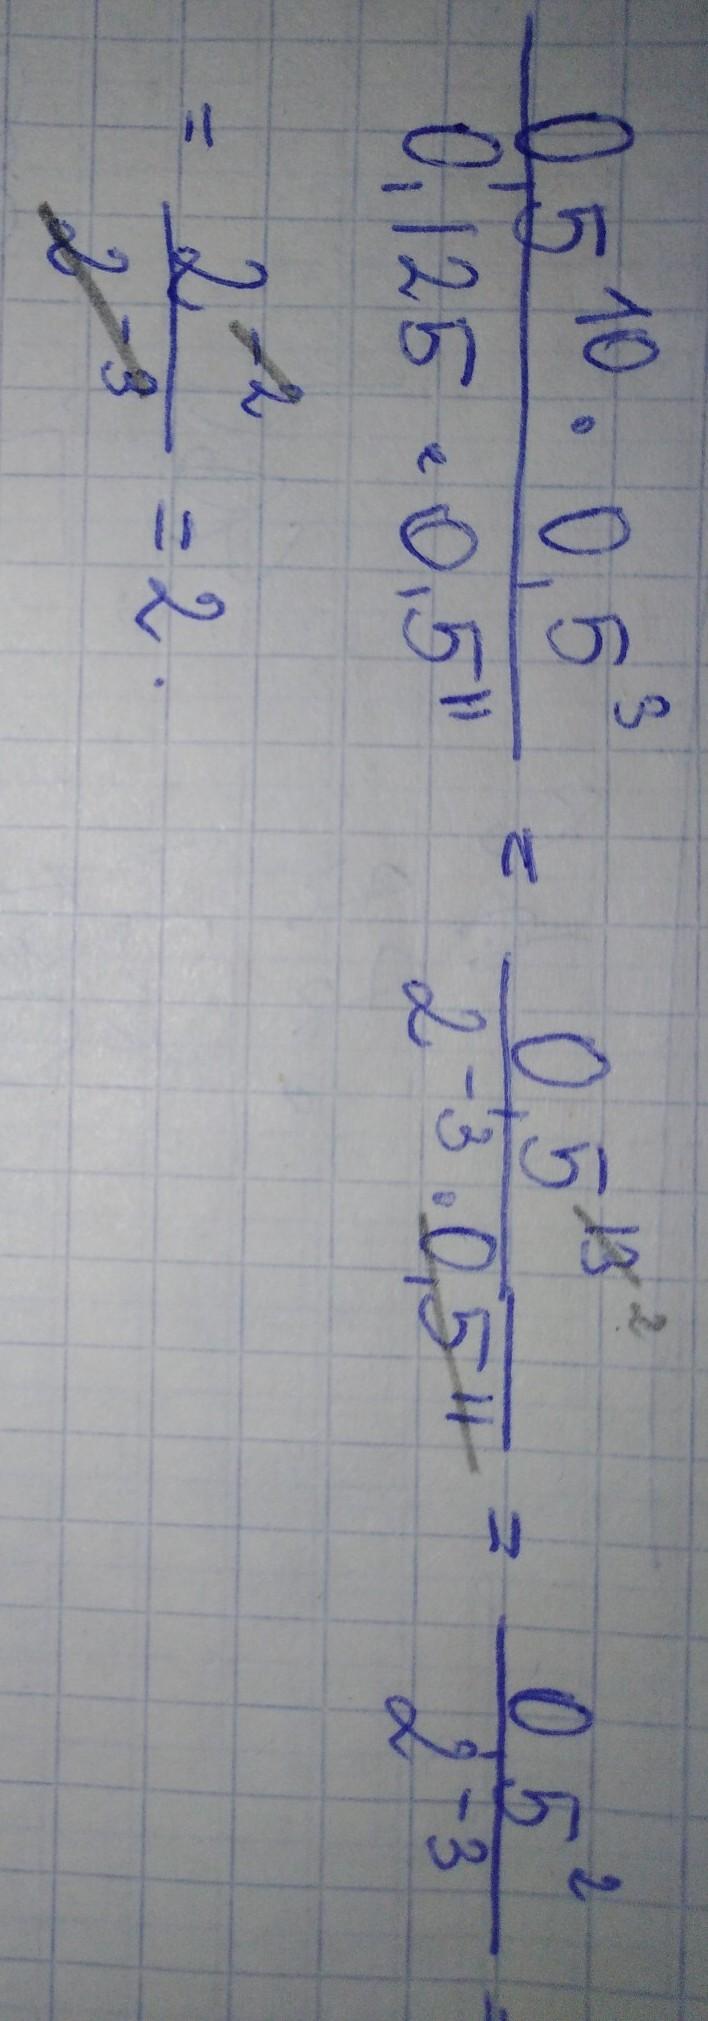 0,5^10 · 0,5^3 / 0,125 · 0,5^11 = 0,5^13 2 / 2^-3 · 0,5^11 = 0,5^2 / 2^-3 =
= 2^-2 / 2^-3 = 2.